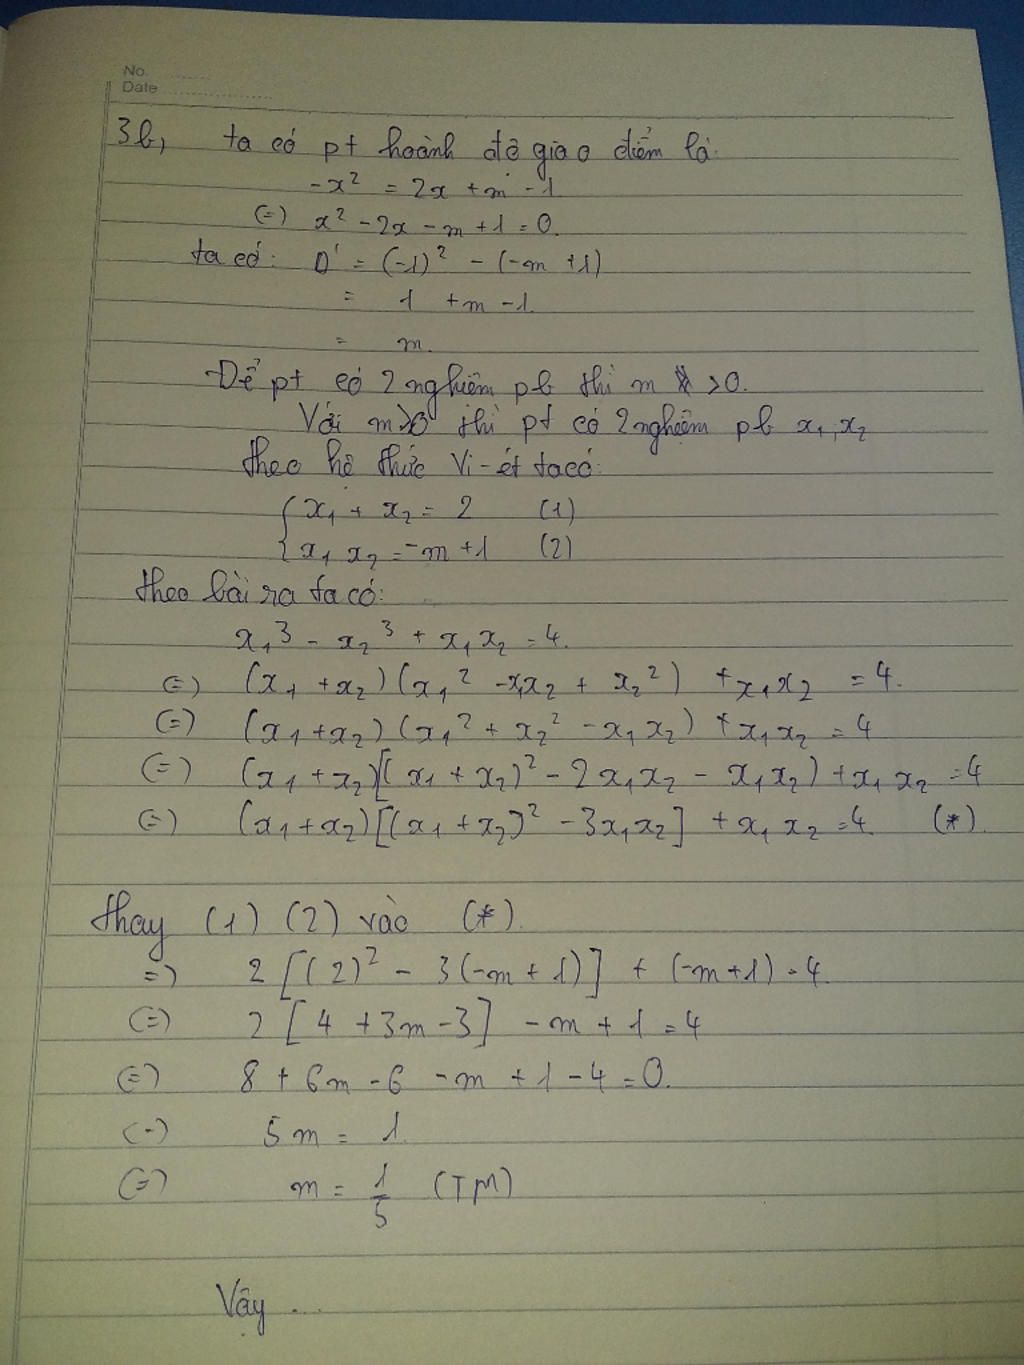 No.
Date
3b, ta có pt hoành độ giao điểm là:
-x² = 2x + m - 1
(=) x² - 2x - m + 1 = 0.
ta có: Δ' = (-1)² - (-m + 1)
= 1 + m - 1
= m.
Để pt có 2 nghiệm pb thì m > 0.
Với m>0 thì pt có 2 nghiệm pb x₁, x₂
theo hệ thức Vi-ét ta có:
{ x₁ + x₂ = 2 (1)
{ x₁ x₂ = -m + 1 (2)
theo bài ra ta có:
x₁³ - x₂³ + x₁x₂ = 4.
(=) (x₁ + x₂)(x₁² - x₁x₂ + x₂²) + x₁x₂ = 4.
(=) (x₁ + x₂)(x₁² + x₂² - x₁x₂) + x₁x₂ = 4
(=) (x₁ + x₂)[(x₁ + x₂)² - 2x₁x₂ - x₁x₂) + x₁x₂ = 4
(=) (x₁ + x₂)[(x₁ + x₂)² - 3x₁x₂] + x₁x₂ = 4 (*).
thay (1) (2) vào (*).
=) 2[(2)² - 3(-m + 1)] + (-m + 1) = 4.
(=) 2[4 + 3m - 3] - m + 1 = 4
(=) 8 + 6m - 6 - m + 1 - 4 = 0.
(-) 5m = 1.
(=) m = 1/5 (TM)
Vậy ...